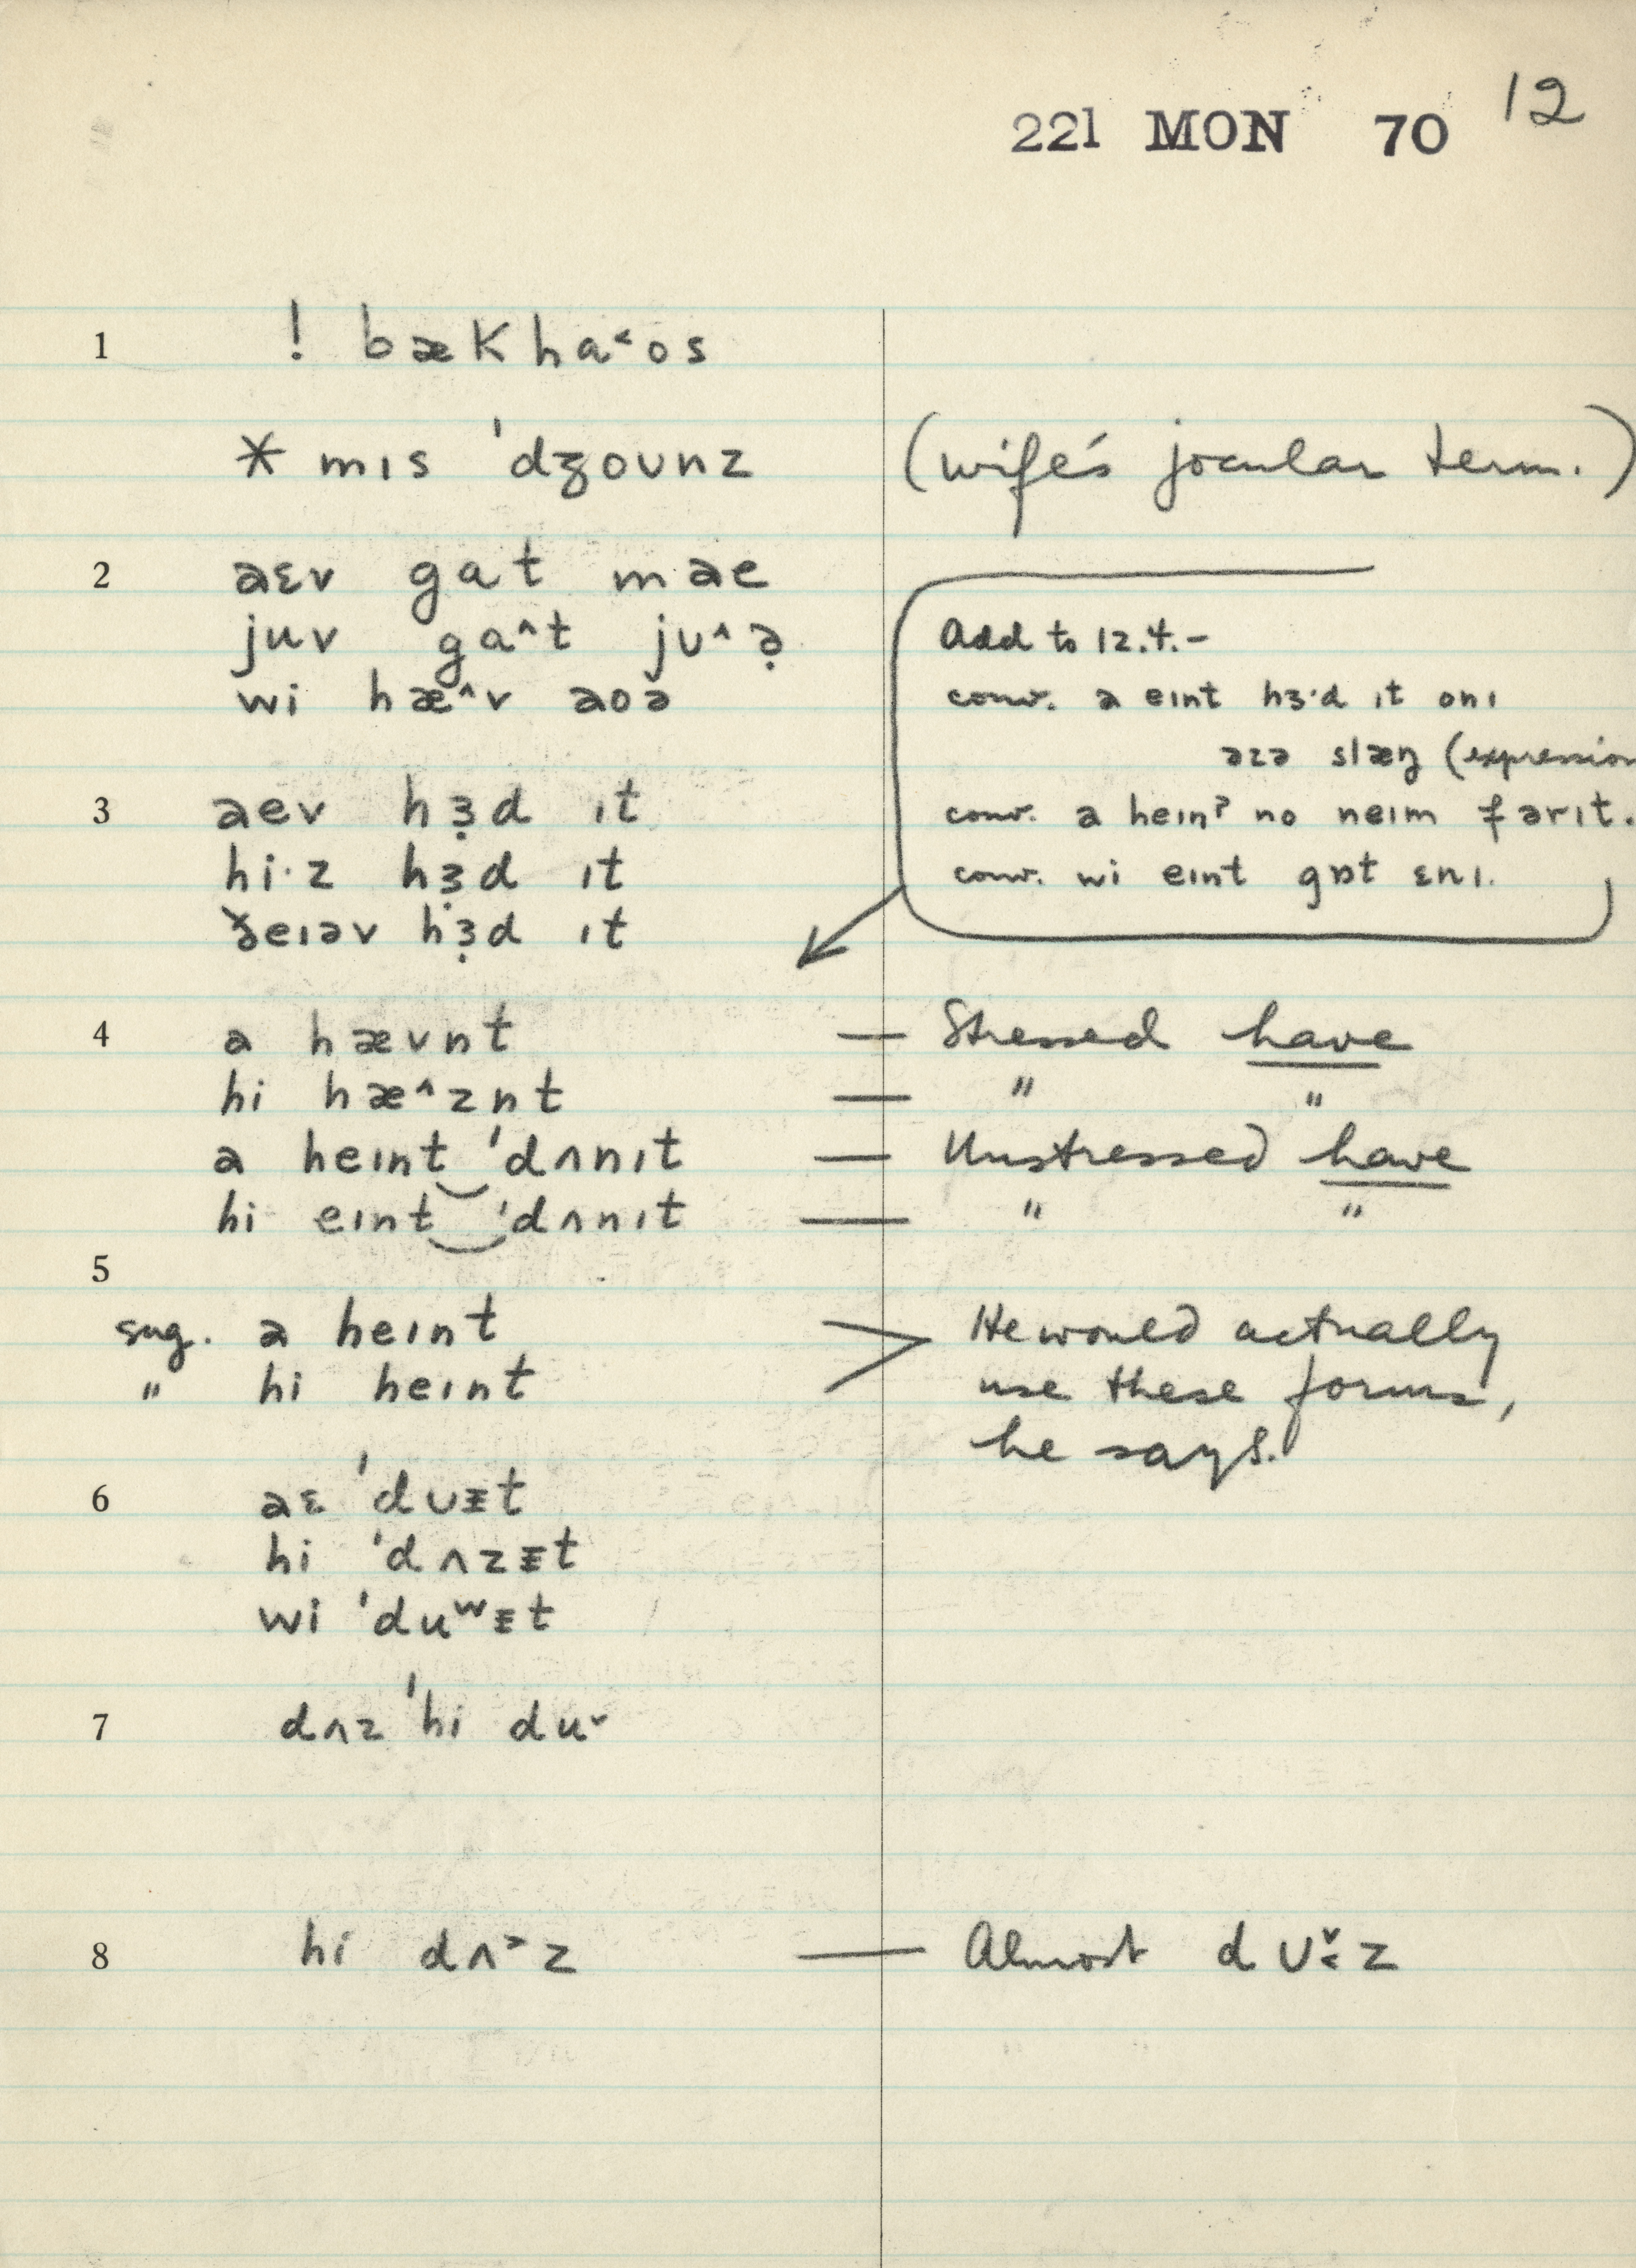 221 MON 70 12
1 ! bækha˂os
* mɪs ˈdʒoʊnz (wife's jocular term.)
2 aɛv gat mae
juv ga^t jʊ^ə̣
wi hæ^v aoə
Add to 12.4.-
conv. a eɪnt hɜ·d ɪt onɪ
əzə slæŋ (expression
conv. a heɪnˀ no neɪm fərɪt.
conv. wi eɪnt gɒt ɛnɪ.
3 aev hɜ̣d ɪt
hi·z hɜ̣d ɪt
ðeɪəv hɜ̣d ɪt
4 a hævnt — Stressed have
hi hæ^znt — " "
a heɪnt‿ˈdʌnɪt — Unstressed have
hi eɪnt‿ˈdʌnɪt — " "
5
sug. a heɪnt > He would actually
" hi heɪnt use these forms,
he says.
6 aɛ ˈdʊᵻt
hi ˈdʌzᵻt
wi ˈduʷᵻt
7 dʌz ˈhi du˅
8 hi dʌ˃z — Almost dʊ˅˂z